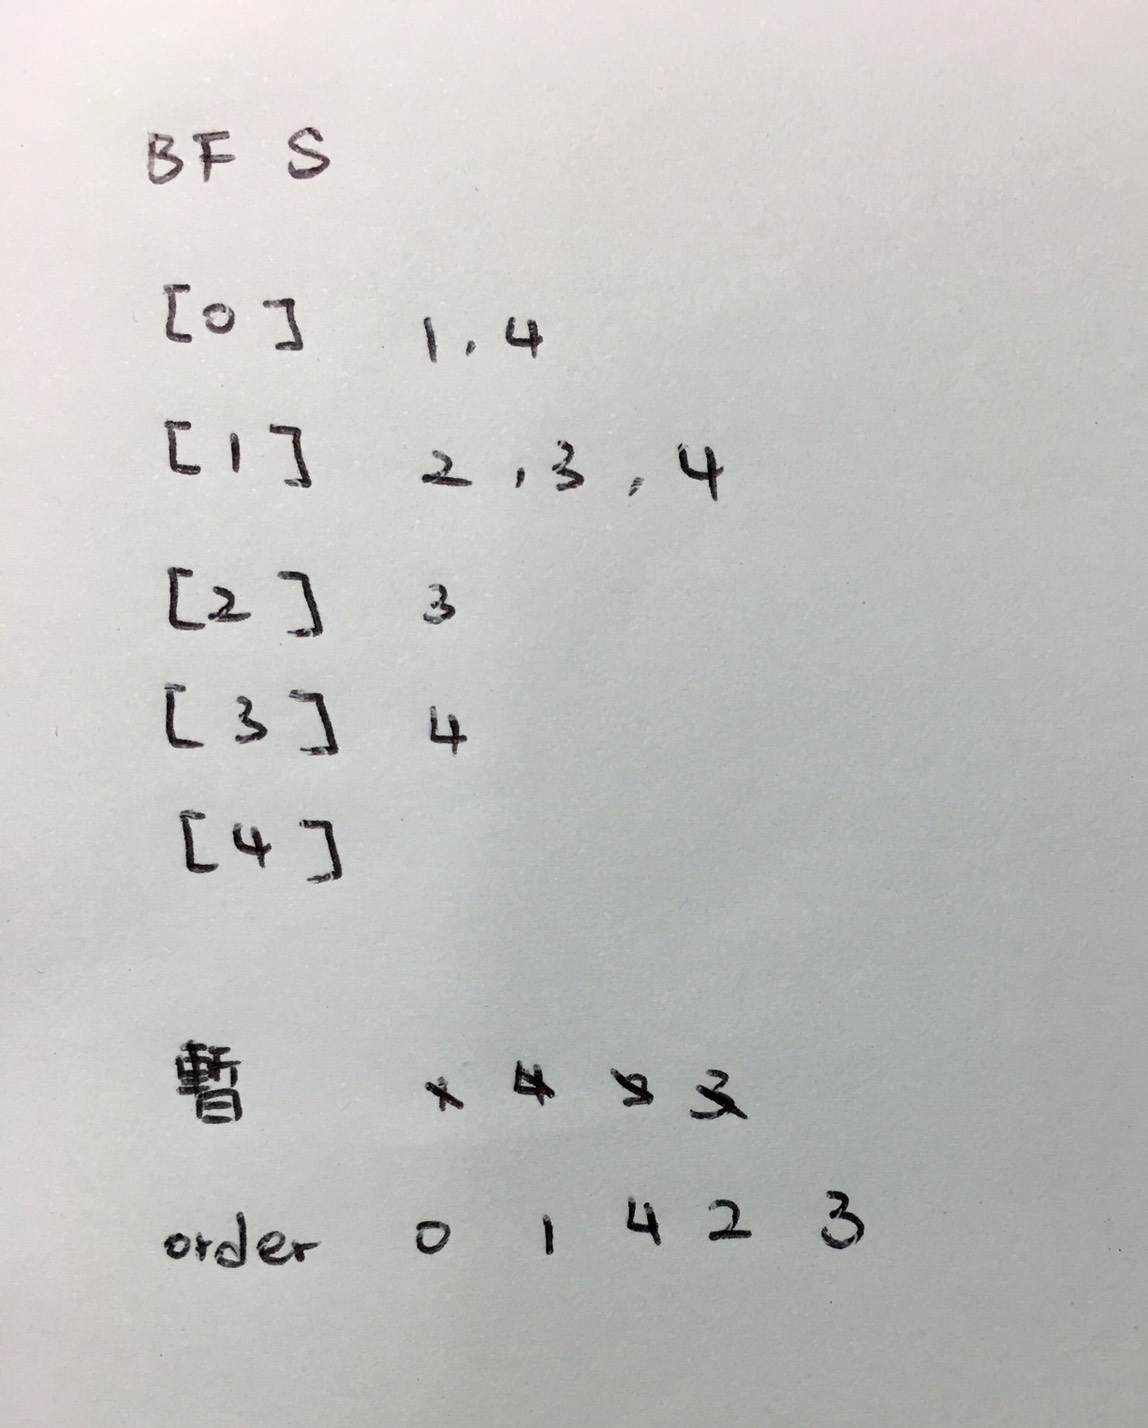 BF S
[0] 1, 4
[1] 2, 3, 4
[2] 3
[3] 4
[4]
暫 1 4 2 3
order 0 1 4 2 3